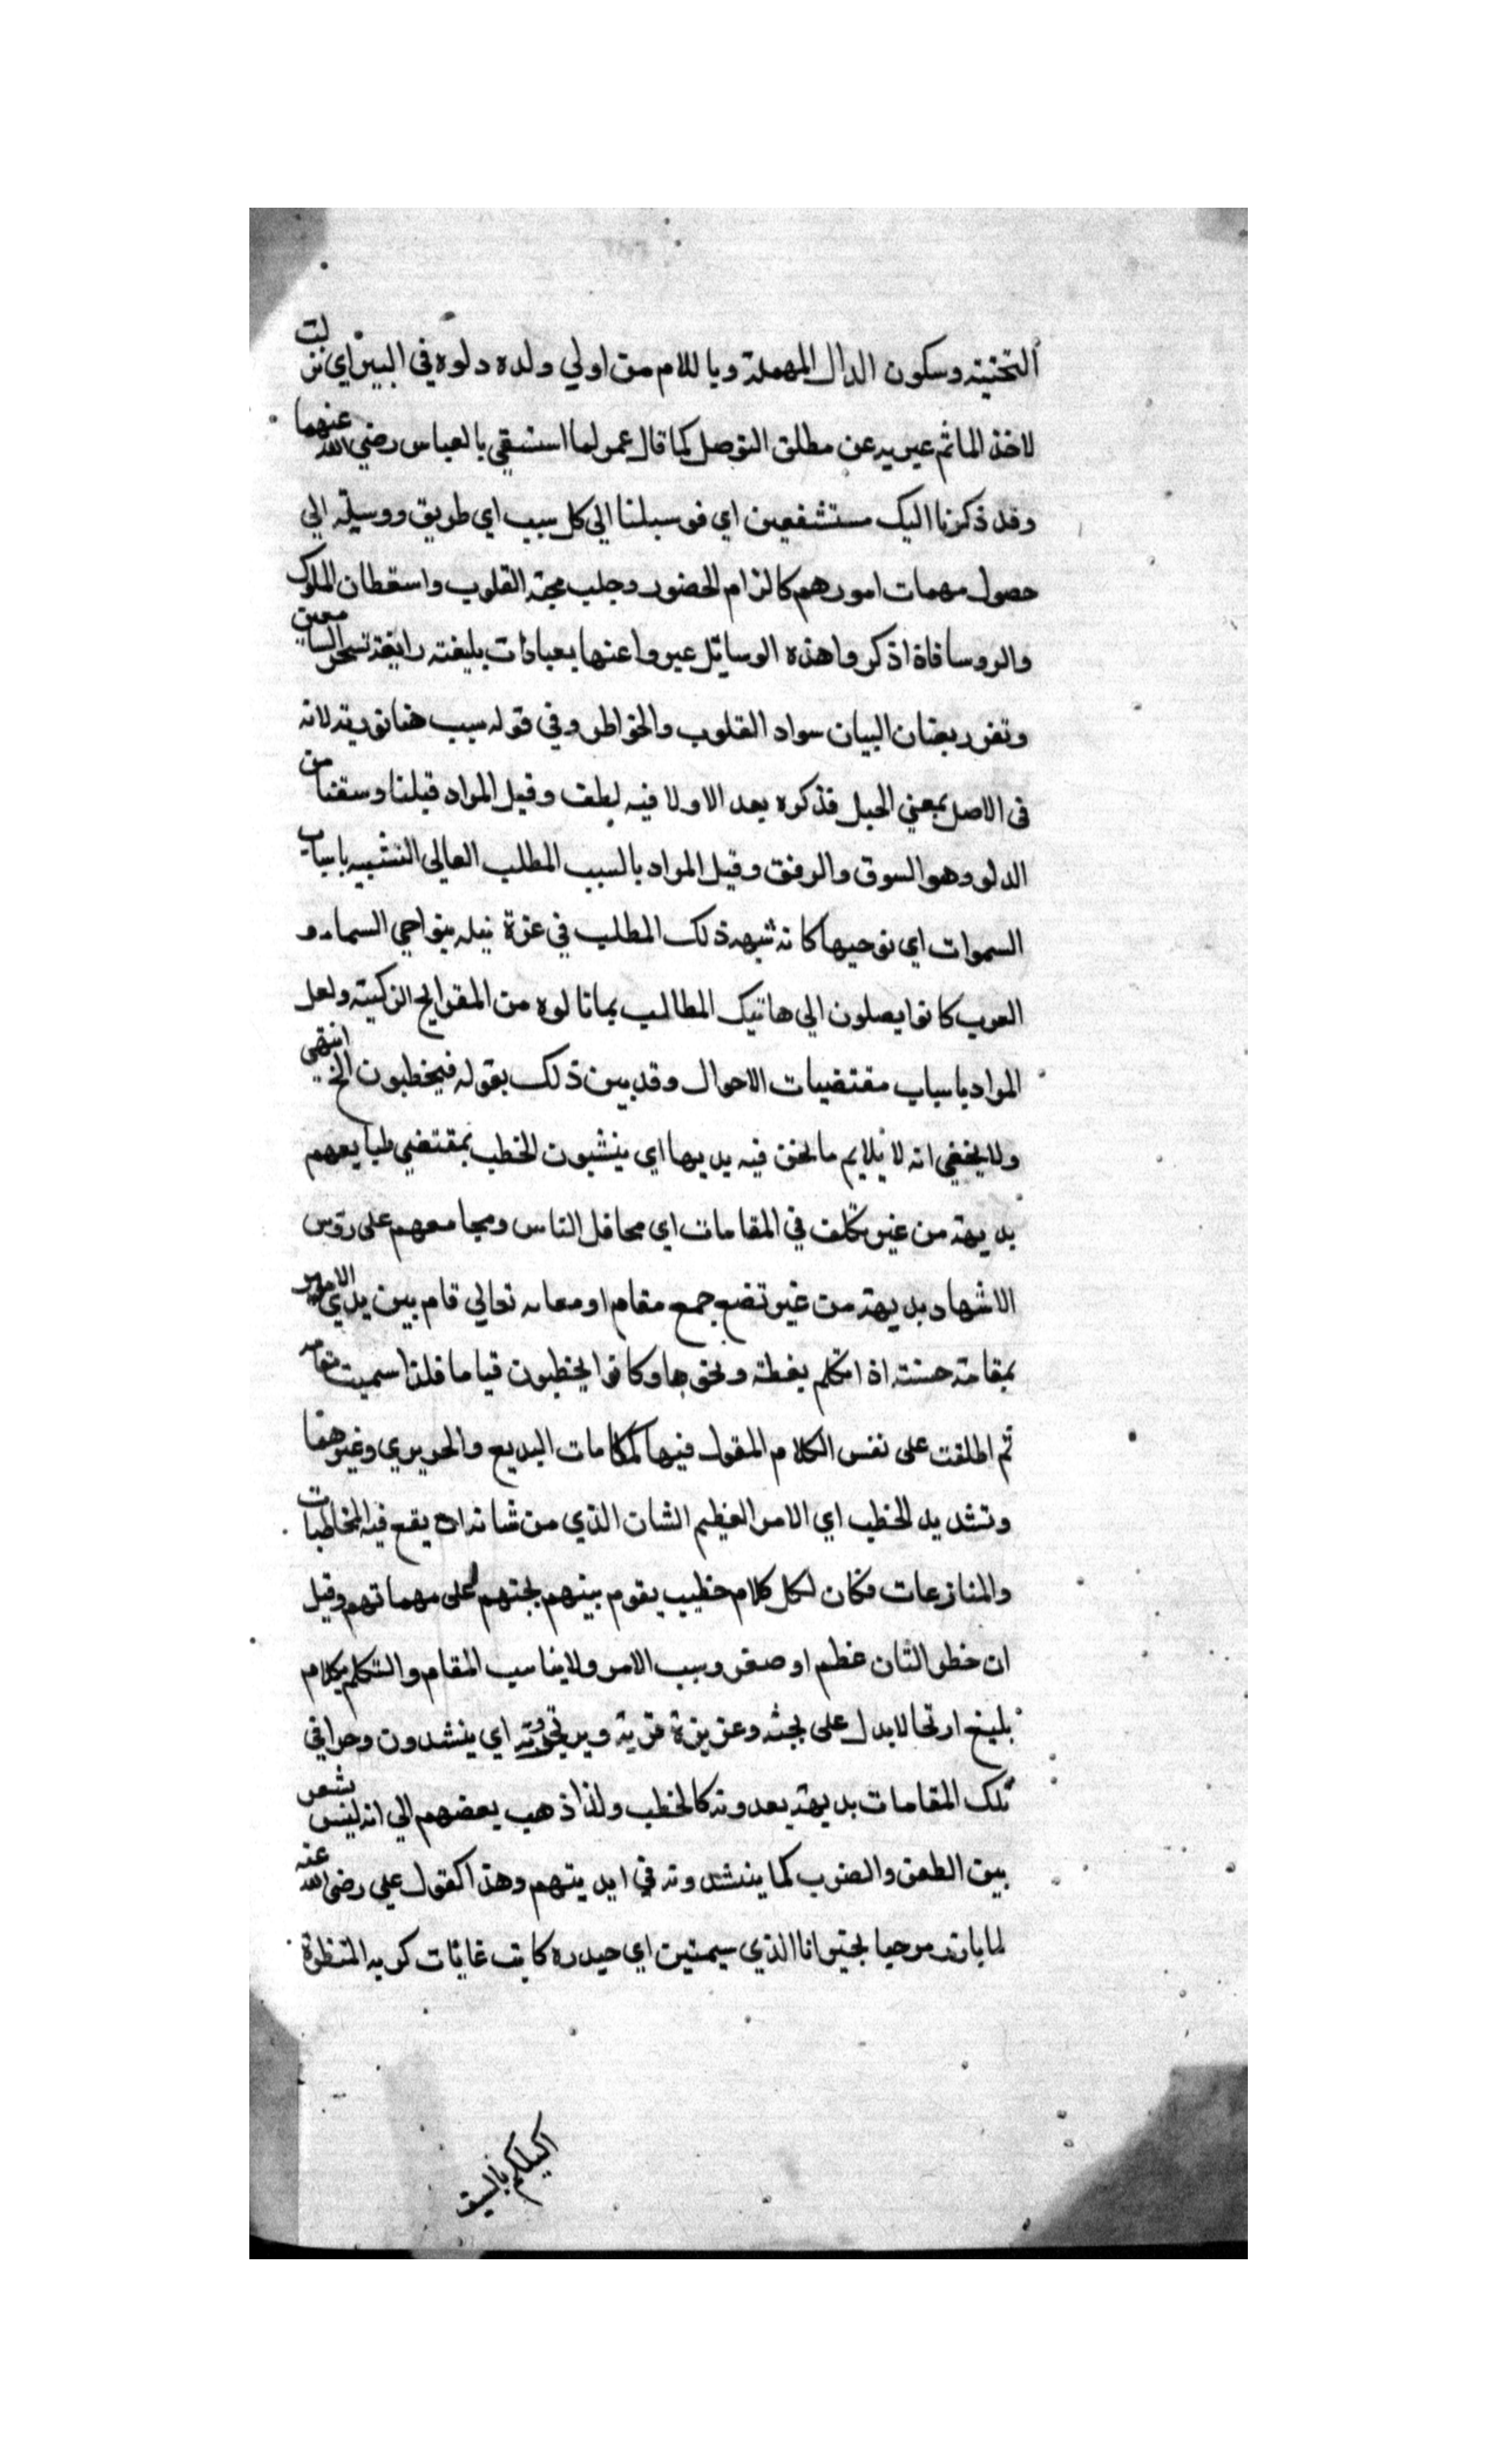 التحتية وسكون الدال المهملة وباللام من اولي ولده دلوه في البيراي نزلت
لاخذ الماثم عبر به عن مطلق التوصل كما قال عمر لما استسقي بالعباس رضي الله عنهما
وقد ذكرنا اليك مستشفعين اي فوسبلنا الي كل سبب اي طريق ووسيلة الي
حصول مهمات امورهم كالزام الحضور وجلب محبة القلوب واسقطان الملوك
والروسا فاذا ذكروا هذه الوسايل عبروا عنها بعبادات بليغته رايغة تسحر السامعين
وتفر ريضان البيان سواد القلوب والخواطر وفي قوله سبب هنا تورية لانه
في الاصل بمعني الحبل فذكره بعد الاولا فيه لطف وقيل المراد قبلنا وسقنا من
الدلو وهو السوق والرفق وقيل المراد بالسبب المطلب العالي التشبيه باسباب
السموات اي نوحيها كانه شبهه ذلك المطلب في عزة نيله بنواحي السماء و
العرب كانوا يصلون الي هاتيك المطالب بمانالوه من المقرايح الزكيته ولعل
المراد باسباب مقتضيات الاحوال وقد بين ذلك بقوله فيخطبون الخ انتهى
ولا يخفي انه لا يلايم ما نحن فيه بديها اي ينشيون الخطب بمقتضي طبايعهم
بديهة من غير تكلف في المقامات اي محافل الناس ومجامعهم على روس
الاشهاد بديهة من غير تضع جمع مقام او مقامه تعالي قام بين يدي الامير
بمقامة حسنته اذا تكلم بغطة ونحوها وكانوا يخطبون قياما فلذا سميت مقامه
ثم اطلقت على نفس الكلام المقول فيها كمقامات البديع والحريري وغيرهما
وتشديد الخطب اي الامر العظيم الشان الذي من شانه ان يقع فيه المخاطبات
والمنازعات فكان لكل كلام خطيب يقوم بينهم لحثهم على مهماتهم وقيل
ان خطر الشان عظم او صغر وسبب الامر ولا يناسب المقام والتكلم بكلام
بليغ ارتجالا يدل على بحثه وعزيزة قرية ويرتجزوته اي ينشدون وحرا في
تلك المقامات بديهة يعدونه كالخطب ولذا ذهب بعضهم الي انه ليس بشعر
بين الطعن والضرب كما ينشدونه في ايديتهم وهذا كقول علي رضي الله عنه
لما بارز مرحبا بخيبر انا الذي سيمتين اي حيدره كليث غاثات كريه المنظرة
اكيلكم بالسيف